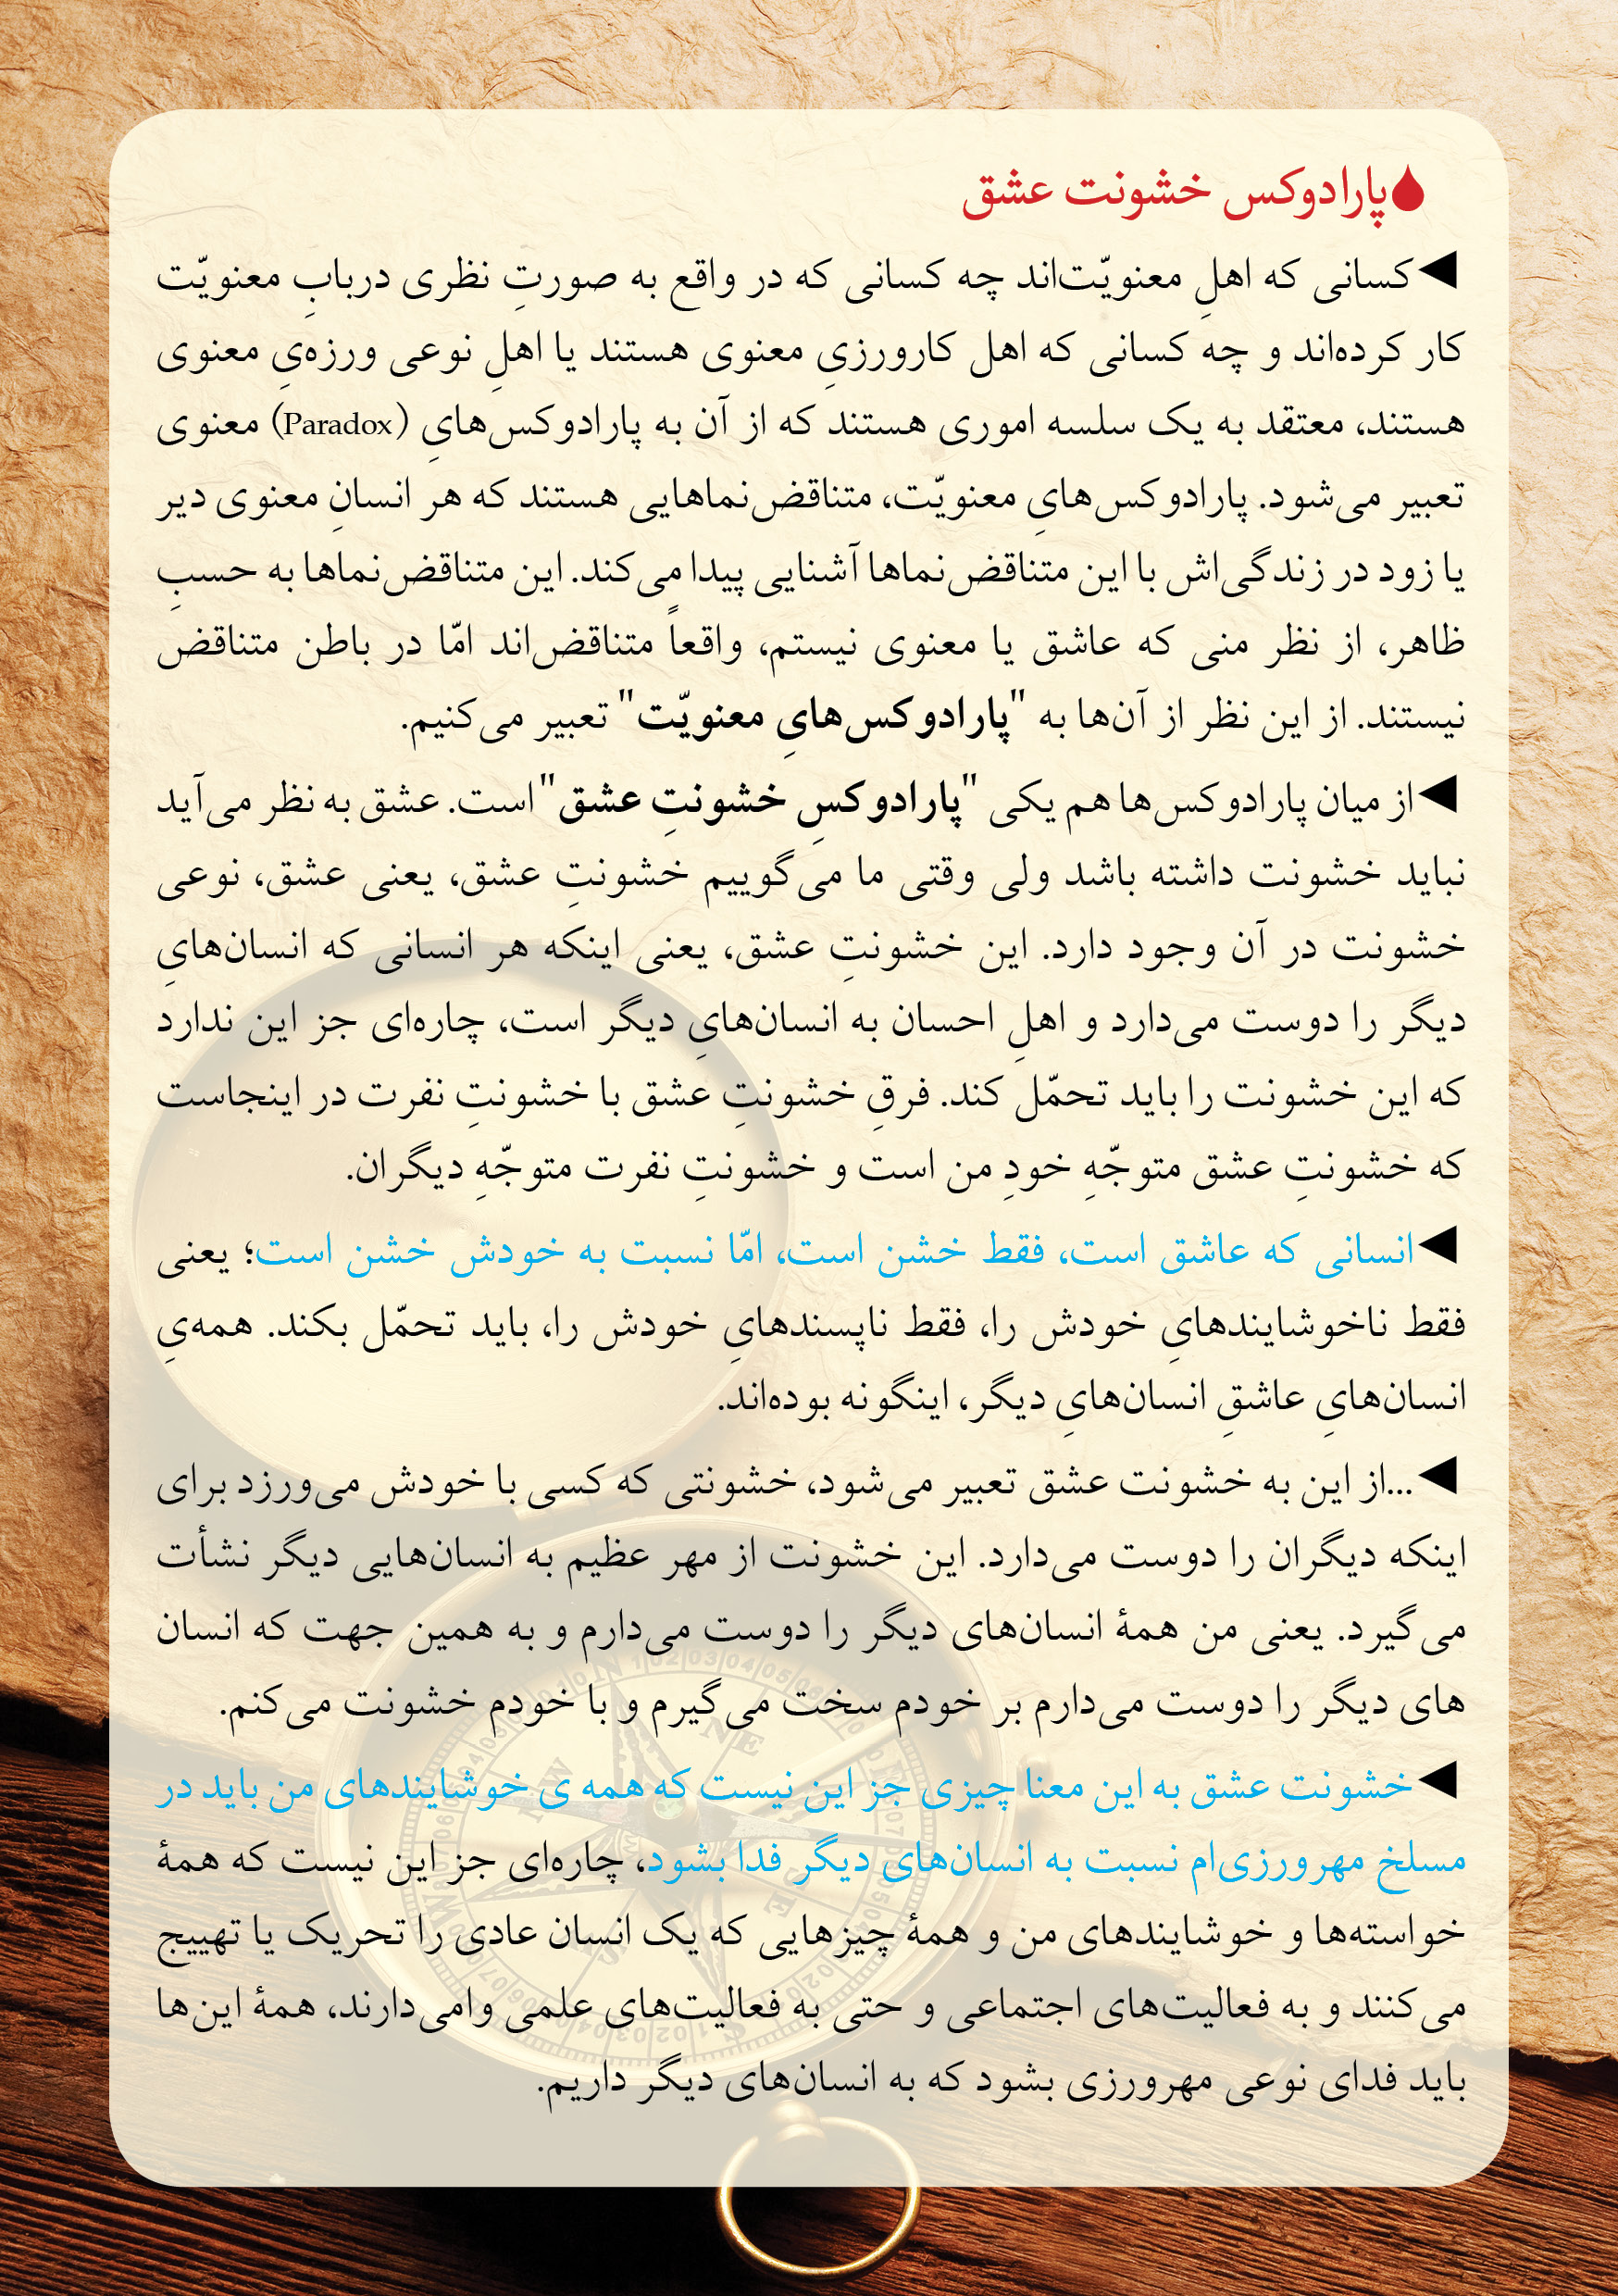 پارادوکس خشونت عشق
◀کسانی که اهلِ معنویّت‌اند چه کسانی که در واقع به صورتِ نظری دربابِ معنویّت
کار کرده‌اند و چه کسانی که اهل کارورزیِ معنوی هستند یا اهلِ نوعی ورزه‌یِ معنوی
هستند، معتقد به یک سلسه اموری هستند که از آن به پارادوکس‌هایِ (Paradox) معنوی
تعبیر می‌شود. پارادوکس‌هایِ معنویّت، متناقض‌نماهایی هستند که هر انسانِ معنوی دیر
یا زود در زندگی‌اش با این متناقض‌نماها آشنایی پیدا می‌کند. این متناقض‌نماها به حسبِ
ظاهر، از نظر منی که عاشق یا معنوی نیستم، واقعاً متناقض‌اند امّا در باطن متناقض
نیستند. از این نظر از آن‌ها به "پارادوکس‌هایِ معنویّت" تعبیر می‌کنیم.
◀از میان پارادوکس‌ها هم یکی "پارادوکسِ خشونتِ عشق" است. عشق به نظر می‌آید
نباید خشونت داشته باشد ولی وقتی ما می‌گوییم خشونتِ عشق، یعنی عشق، نوعی
خشونت در آن وجود دارد. این خشونتِ عشق، یعنی اینکه هر انسانی که انسان‌هایِ
دیگر را دوست می‌دارد و اهلِ احسان به انسان‌هایِ دیگر است، چاره‌ای جز این ندارد
که این خشونت را باید تحمّل کند. فرقِ خشونتِ عشق با خشونتِ نفرت در اینجاست
که خشونتِ عشق متوجّهِ خودِ من است و خشونتِ نفرت متوجّهِ دیگران.
◀انسانی که عاشق است، فقط خشن است، امّا نسبت به خودش خشن است؛ یعنی
فقط ناخوشایندهایِ خودش را، فقط ناپسندهایِ خودش را، باید تحمّل بکند. همه‌یِ
انسان‌هایِ عاشقِ انسان‌هایِ دیگر، اینگونه بوده‌اند.
◀...از این به خشونت عشق تعبیر می‌شود، خشونتی که کسی با خودش می‌ورزد برای
اینکه دیگران را دوست می‌دارد. این خشونت از مهر عظیم به انسان‌هایی دیگر نشأت
می‌گیرد. یعنی من همهٔ انسان‌های دیگر را دوست می‌دارم و به همین جهت که انسان
های دیگر را دوست می‌دارم بر خودم سخت می‌گیرم و با خودم خشونت می‌کنم.
◀خشونت عشق به این معنا چیزی جز این نیست که همه ی خوشایندهای من باید در
مسلخ مهرورزی‌ام نسبت به انسان‌های دیگر فدا بشود، چاره‌ای جز این نیست که همهٔ
خواسته‌ها و خوشایندهای من و همهٔ چیزهایی که یک انسان عادی را تحریک یا تهییج
می‌کنند و به فعالیت‌های اجتماعی و حتی به فعالیت‌های علمی وامی‌دارند، همهٔ این‌ها
باید فدای نوعی مهرورزی بشود که به انسان‌های دیگر داریم.